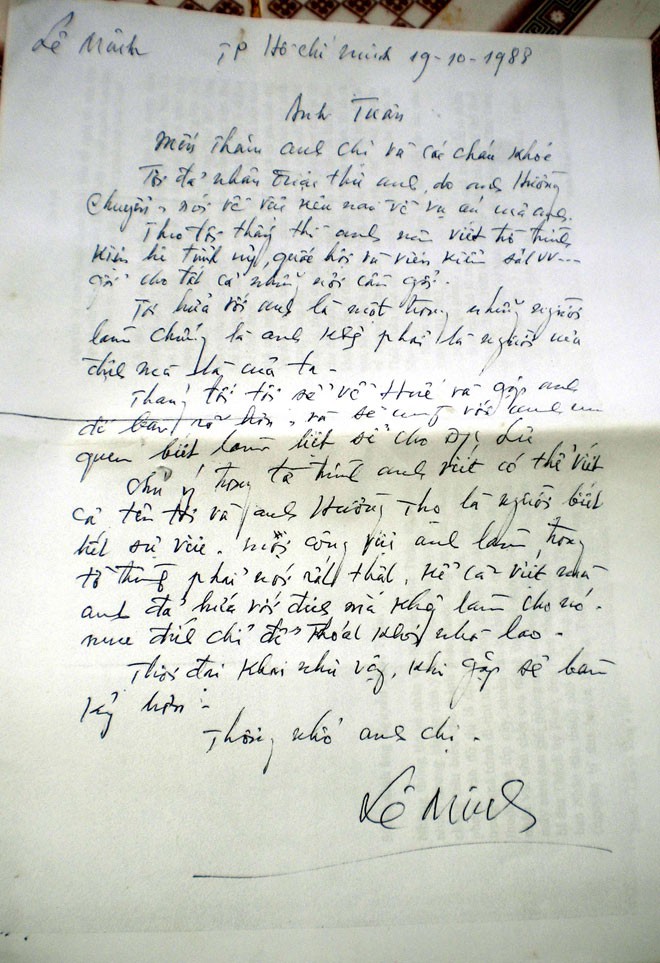 Lê Minh TP Hồ-chí minh 19-10-1988
Anh Tuân
mến thăm anh chị và các cháu khoẻ
Tôi đã nhận được thư anh, do anh Hường
chuyển, nói về việc vụ án anh.
Theo tôi thấy thì anh nên viết tờ trình
tỉnh uỷ, quốc hội và viện kiểm sát vv...
gởi cho tất cả những nơi cần gởi.
Tôi hứa với anh là một trong những người
làm chứng là anh khg phải là người của
địch mà là của ta.
Tháng tới tôi sẽ về Huế và gặp anh
để bàn rõ hơn, và sẽ cùng với anh em
quen biết
chú ý trong tờ trình anh viết có thể viết
cả tên tôi và anh Hường Thọ là người biết
hết sự việc. mọi công việc anh làm trong
tờ trình phải nói rất thật, kể cả việc mà
anh đã hứa với địch mà khg làm cho nó.
mục đích chỉ để thoát khỏi nhà lao.
Thôi đại khái như vậy, khi gặp sẽ bàn
kỹ hơn.
Thương nhớ anh chị.
Lê Minh